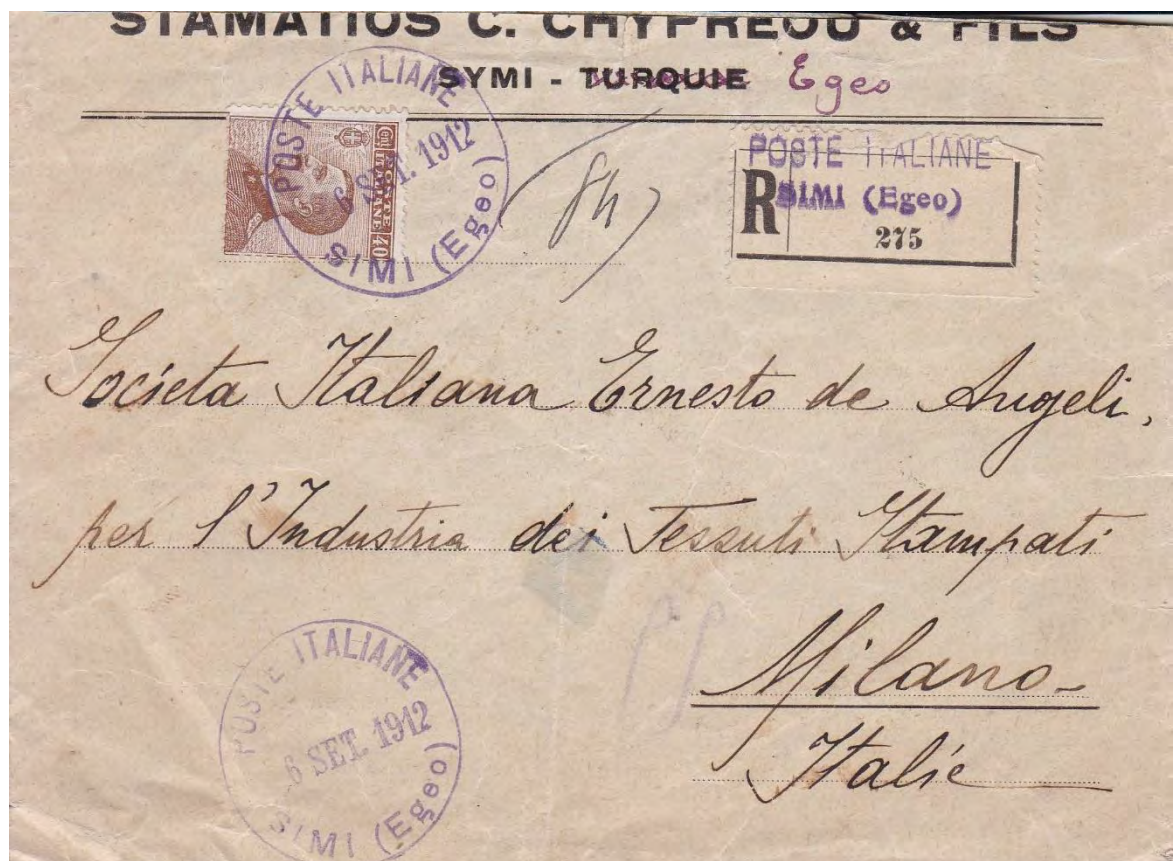 STAMATIOS C. CHYPREOU & FILS
SYMI - TURQUIE Egeo
POSTE ITALIANE
6 SET. 1912
SIMI (Egeo)
POSTE ITALIANE
40
(84)
POSTE ITALIANE
R SIMI (Egeo)
275
Societa Italiana Ernesto de Angeli,
per l'Industria dei Tessuti Stampati
Milano-
Italie
POSTE ITALIANE
6 SET. 1912
SIMI (Egeo)